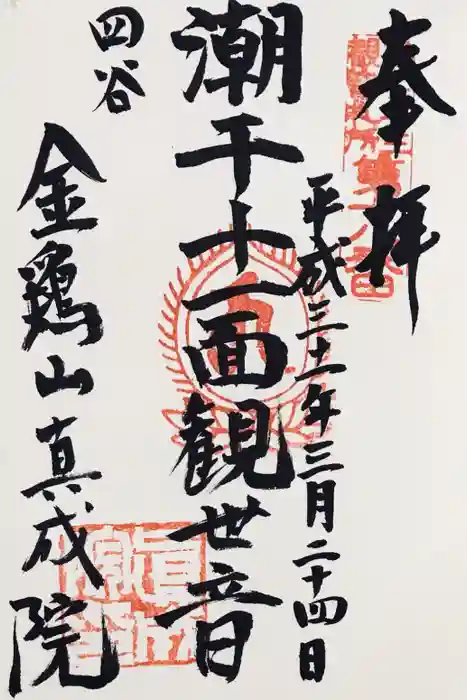 奉拝
平成三十一年三月二十四日
潮干十一面観世音
四谷
金鶏山真成院